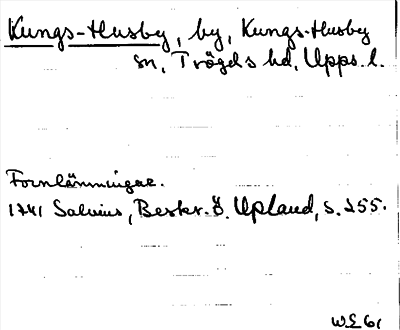 Kungs-Husby, by, Kungs-Husby
sn, Trögds hd, Upps. l.
Fornlämningar.
1741 Salvius, Beskr. ö. Upland, s. 255.